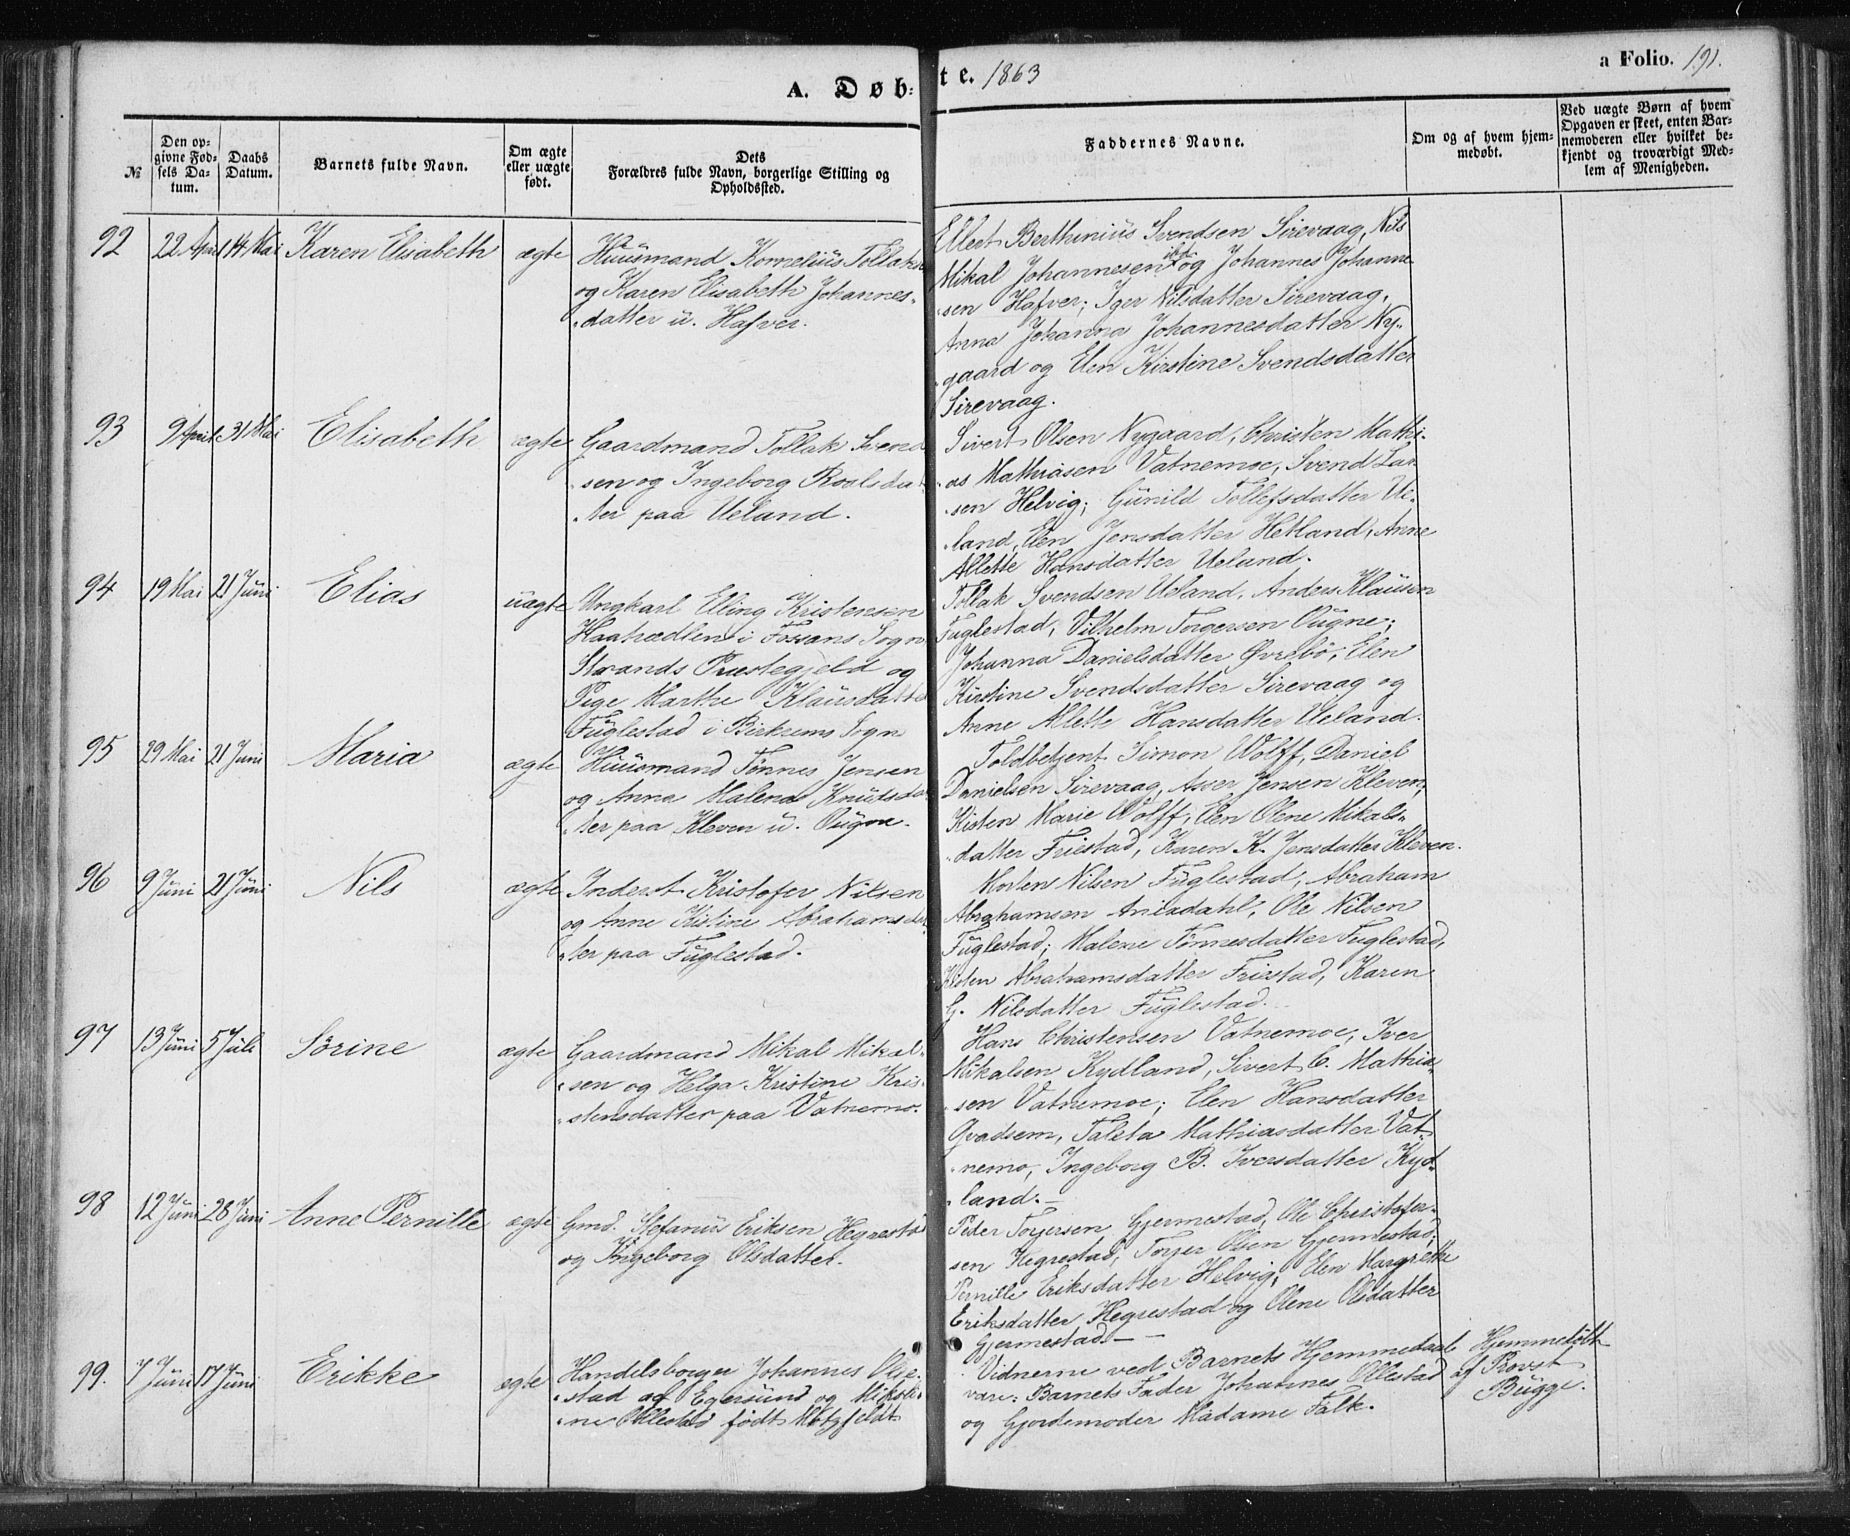 A. Døb-
te. 1863
a Folio. 191.
№
Den op-
givne Fød-
sels Da-
tum.
Daabs
Datum.
Barnets fulde Navn.
Om ægte
eller uægte
født.
Dets
Forældres fulde Navn, borgerlige Stilling og
Opholdssted.
Faddernes Navne.
Om og af hvem hjem-
medøbt.
Ved uægte Børn af hvem
Opgaven er skeet, enten Bar-
nemoderen eller hvilket be-
kjendt og troværdigt Med-
lem af Menigheden.
92
22 April
14 Mai
Karen Elisabeth
ægte
Huusmand Kornelius Tollaks
og Karen Elisabeth Johannes-
datter u. Hafver.
Ellert Berthinius Svendsen Sirevaag, Nils
Mikal Johannesen og Johannes Johanne
sen Hafver; Iger Nilsdatter Sirevaag,
Anna Johanna Johannesdatter Ny-
gaard og Elen Kirstine Svendsdatter
Sirevaag.
93
9 April
31 Mai
Elisabeth
ægte
Gaardmand Tollak Svend
sen og Ingeborg Roalsdat
ter paa Ueland.
Sivert Olsen Nygaard, Christen Mathi-
as Mathiasen Vatnemoe, Svend Lar
sen Helvig; Gunild Tollefsdatter Ue-
land, Elen Jensdatter Hetland, Anne
Allette Hansdatter Ueland.
94
19 Mai
21 Juni
Elias
uægte
Ungkarl Elling Kristensen
i Fossans Sogn
Strands Præstegjeld og
Pige Marthe Klausdatte
Fuglestad i Birkrems Sogn
Tollak Svendsen Ueland, Anders Klausen
Fuglestad, Vilhelm Torgersen Ougne;
Johanna Danielsdatter Øvrebö, Elen
Kirstine Svendsdatter Sirevaag og
Anne Allette Hansdatter Ueland.
95
29 Mai
21 Juni
Maria
ægte
Huusmand Tønnes Jensen
og Anna Malena Knudsda
ter paa Kleven u. Ougne.
Toldbetjent Simon Wolff, Daniel
Danielsen Sirevaag, Asser Jensen Kleven,
Kisten Marie Wolff, Elen Olene Mikals-
datter Friestad, Karen K. Jensdatter Kleven.
96
9 Juni
21 Juni
Nils
ægte
Inderst Kristofer Nilsen
og Anne Kistine Abrahamsdat
ter paa Fuglestad.
Morten Nilsen Fuglestad, Abraham
Abrahamsen Anisdahl, Ole Nilsen
Fuglestad; Malene Tønnesdatter Fuglestad,
Kisten Abrahamsdatter Friestad, Karen
G. Nilsdatter Fuglestad.
97
13 Juni
5 Juli
Sørine
ægte
Gaardmand Mikal Mikal-
sen og Helga Kristine Kris-
stensdatter paa Vatnemo.
Hans Christensen Vatnemoe, Iver
Mikalsen Kydland, Sivert C. Mathia-
sen Vatnemoe; Elen Hansdatter
Qvadsem, Taleta Mathiasdatter Vat-
nemo, Ingeborg B. Iversdatter Kyd-
land.
98
12 Juni
28 Juni
Anne Pernille
ægte
Gmd. Stefanus Eriksen Hegresta
og Ingeborg Olsdatter.
Peder Torjersen Gjermestad, Ole Christofer-
sen Hegrestad, Torjer Olsen Gjermestad;
Pernille Eriksdatter Helvig, Elen Margrethe
Eriksdatter Hegrestad og Olene Olsdatter
Gjermestad.
99.
7 Juni
17 Juni
Erikke
ægte
Handelsborger Johannes Olle-
stad af Egersund og
Ollestad født Motzfeldt
Vidnerne ved Barnets Hjemmedaab
vare: Barnets Fader Johannes Ollestad
og Gjordemoder Madame Falk.
Hjemmedøbt
af Provst
Bugge.